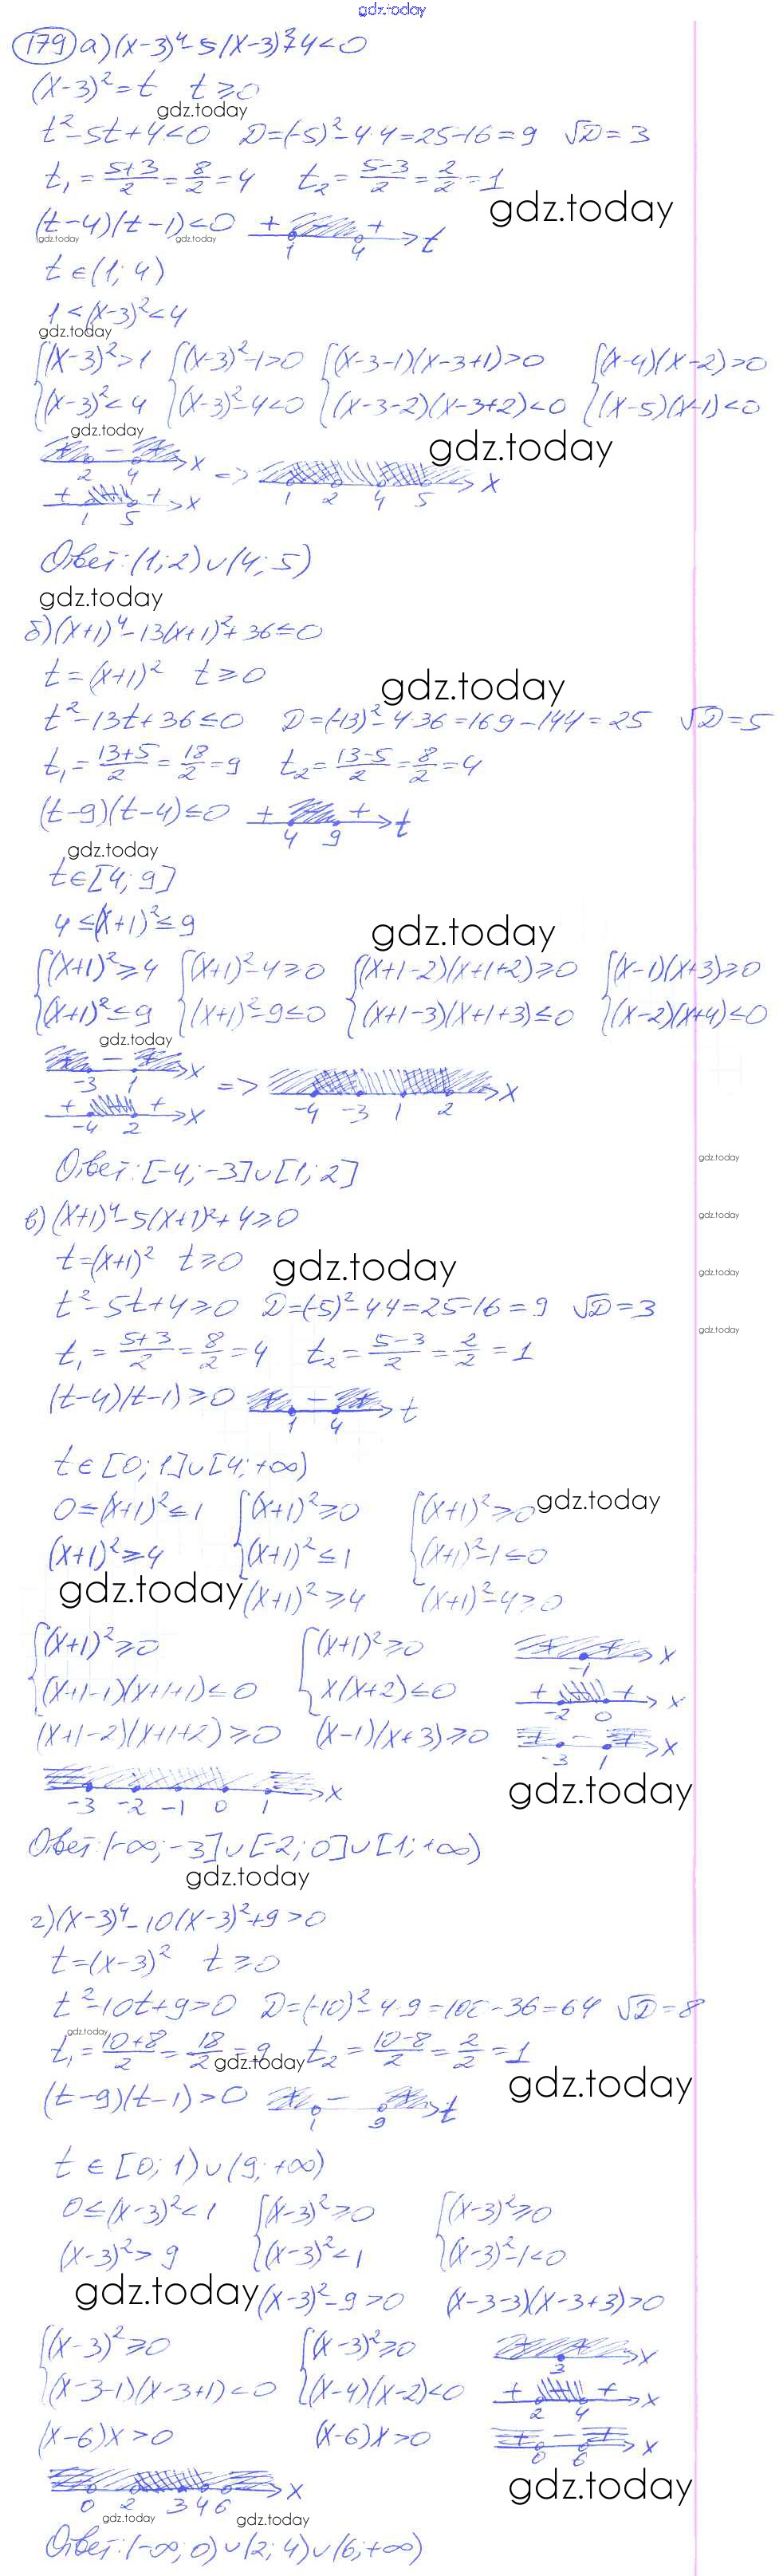 gdz.today
179 а) (x-3)⁴-5(x-3)²+4<0
(x-3)²=t t≥0
gdz.today
t²-5t+4<0 D=(-5)²-4·4=25-16=9 √D=3
t₁=(5+3)/2=8/2=4 t₂=(5-3)/2=2/2=1
gdz.today
(t-4)(t-1)<0 + + t
gdz.today gdz.today
1 4
t∈(1;4)
1<(x-3)²<4
gdz.today
{(x-3)²>1 {(x-3)²-1>0 {(x-3-1)(x-3+1)>0 {(x-4)(x-2)>0
{(x-3)²<4 {(x-3)²-4<0 {(x-3-2)(x-3+2)<0 {(x-5)(x-1)<0
gdz.today gdz.today
+ - + x
2 4
=> x
1 2 4 5
+ + x
1 5
Ответ: (1;2)∪(4;5)
gdz.today
б) (x+1)⁴-13(x+1)²+36≤0
t=(x+1)² t≥0
gdz.today
t²-13t+36≤0 D=(-13)²-4·36=169-144=25 √D=5
t₁=(13+5)/2=18/2=9 t₂=(13-5)/2=8/2=4
(t-9)(t-4)≤0 + + t
4 9
gdz.today
t∈[4;9]
4≤(x+1)²≤9
gdz.today
{(x+1)²≥4 {(x+1)²-4≥0 {(x+1-2)(x+1+2)≥0 {(x-1)(x+3)≥0
{(x+1)²≤9 {(x+1)²-9≤0 {(x+1-3)(x+1+3)≤0 {(x-2)(x+4)≤0
gdz.today
+ - + x
-3 1
=> x
-4 -3 1 2
+ + x
-4 2
Ответ: [-4;-3]∪[1;2]
gdz.today
в) (x+1)⁴-5(x+1)²+4≥0
gdz.today
t=(x+1)² t≥0
gdz.today
gdz.today
t²-5t+4≥0 D=(-5)²-4·4=25-16=9 √D=3
gdz.today
t₁=(5+3)/2=8/2=4 t₂=(5-3)/2=2/2=1
(t-4)(t-1)≥0 + - + t
1 4
t∈[0;1]∪[4;+∞)
0≤(x+1)²≤1 {(x+1)²≥0 {(x+1)²≥0
gdz.today
(x+1)²≥4 {(x+1)²≤1 {(x+1)²-1≤0
gdz.today
(x+1)²≥4 (x+1)²-4≥0
{(x+1)²≥0 {(x+1)²≥0 + + x
-1
{(x+1-1)(x+1+1)≤0 {x(x+2)≤0 + + x
-2 0
(x+1-2)(x+1+2)≥0 (x-1)(x+3)≥0 + - + x
-3 1
x
-3 -2 -1 0 1
gdz.today
Ответ: (-∞;-3]∪[-2;0]∪[1;+∞)
gdz.today
г) (x-3)⁴-10(x-3)²+9>0
t=(x-3)² t≥0
t²-10t+9>0 D=(-10)²-4·9=100-36=64 √D=8
gdz.today
t₁=(10+8)/2=18/2=9 t₂=(10-8)/2=2/2=1
gdz.today
gdz.today
(t-9)(t-1)>0 + - + t
1 9
t∈[0;1)∪(9;+∞)
0≤(x-3)²<1 {(x-3)²≥0 {(x-3)²≥0
(x-3)²>9 {(x-3)²<1 {(x-3)²-1<0
gdz.today
(x-3)²-9>0 (x-3-3)(x-3+3)>0
{(x-3)²≥0 {(x-3)²≥0 + + x
3
{(x-3-1)(x-3+1)<0 {(x-4)(x-2)<0 + + x
2 4
(x-6)x>0 (x-6)x>0 + - + x
0 6
x
0 2 3 4 6
gdz.today
gdz.today gdz.today
Ответ: (-∞;0)∪(2;4)∪(6;+∞)